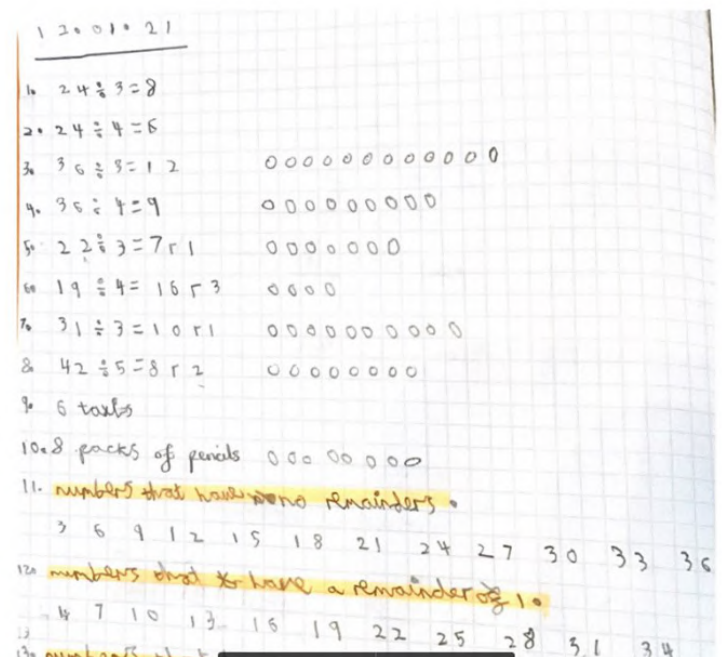 12.01.21
1. 24÷3=8
2. 24÷4=6
3. 36÷3=12 000000000000
4. 36÷4=9 000000000
5. 22÷3=7 r 1 0000000
6. 19÷4= 16 r 3 0000
7. 31÷3=10 r 1 0000000000
8. 42÷5=8 r 2 00000000
9. 6
10. 8 packs of pencils 00000000
11. numbers that have no remainders.
3 6 9 12 15 18 21 24 27 30 33 36
12. numbers that have a remainder of 1.
4 7 10 13 16 19 22 25 28 31 34
13. numbers